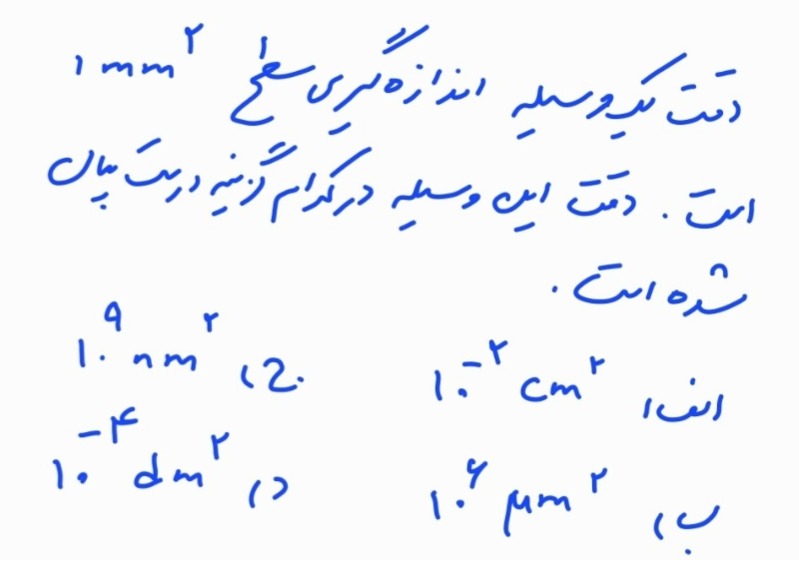 دقت یک وسیله اندازه‌گیری سطح ۱ mm^۲
است. دقت این وسیله در کدام گزینه درست بیان
شده است.
الف) ۱۰^-۲ cm^۲ ج) ۱۰^۹ nm^۲
ب) ۱۰^۶ μm^۲ د) ۱۰^-۴ dm^۲